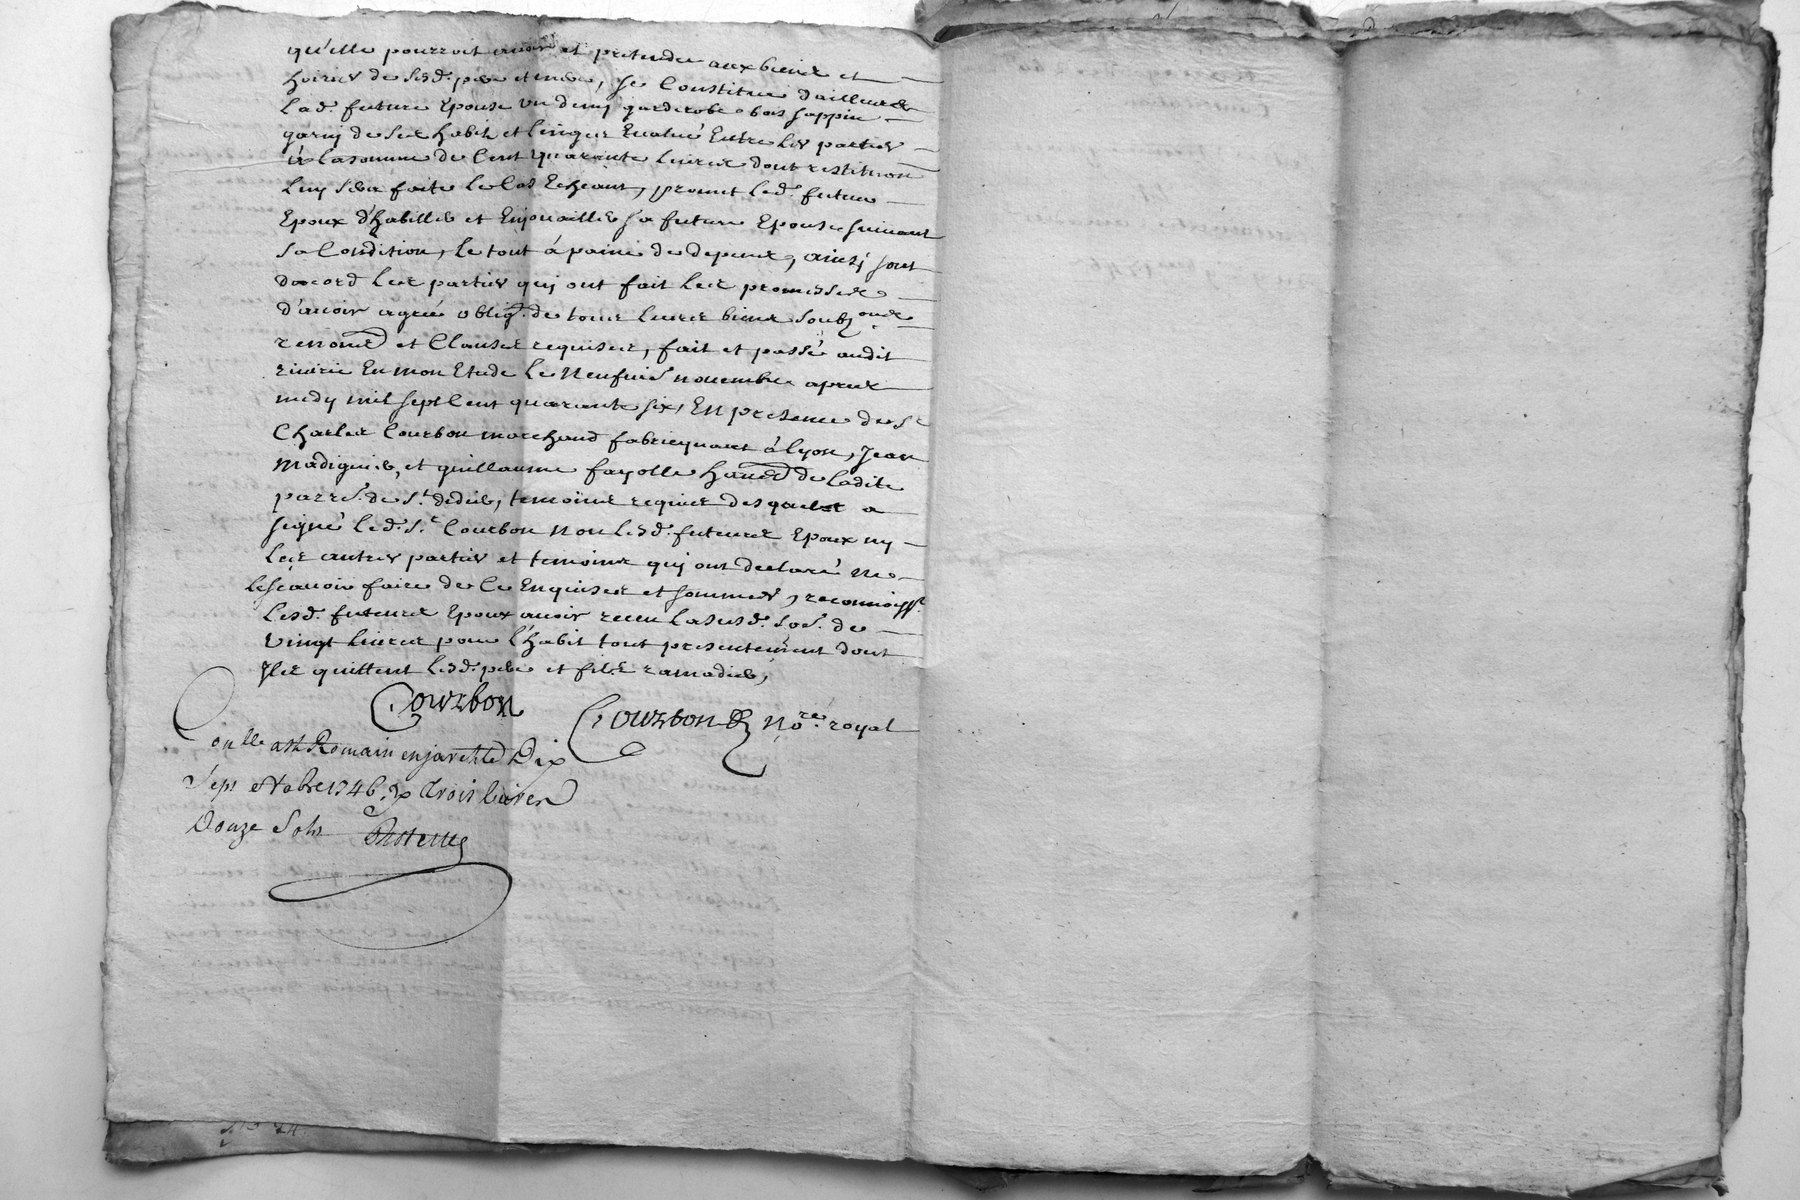 qu'elle pourroit avoir et pretendre aux biens et
hoiries de sesd. pere et mere, se Constitue d'ailleurs
lad. future Epouse un demy garderobe bois sappin
garny de ses habits et linges Evalué Entre les parties
à la somme de Cent quarante livres dont restitution
luy sera faite le Cas Echeant, promet led. futur
Epoux d'habiller et Enjouailler sa future Epouse suivant
sa Condition, le tout à peine de depens, ainsi sont
d'accord les parties qui ont fait les promesses
d'avoir agréé oblig. de tous leurs biens soubz
renonc. et Clauses requises, fait et passé audit
riverie En mon Etude le Neufvie. novembre apres
midy mil sept Cent quarante six, En presence de Sr
Charles Courbon marchand fabricquant à lyon, Jean
Madignier, et guillaume fayolle de ladite
parr. de St. didier, temoins requis desquels a
signé led. Sr. Courbon Non lesd. futurs Epoux ny
les autres parties et temoins qui ont declaré ne
le sçavoir faire de Ce Enquises et sommés, reconnoiss.
lesd. futurs Epoux avoir receu la susd. so. de
vingt livres pour l'habit tout presentement dont
Ils quittent lesd. pere et fils ramadier,
Courbon
Courbon Nore. royal
Conlle a St Romain en jarest le Dix
Sept 9bre 1746. Trois livres
Douze Sols